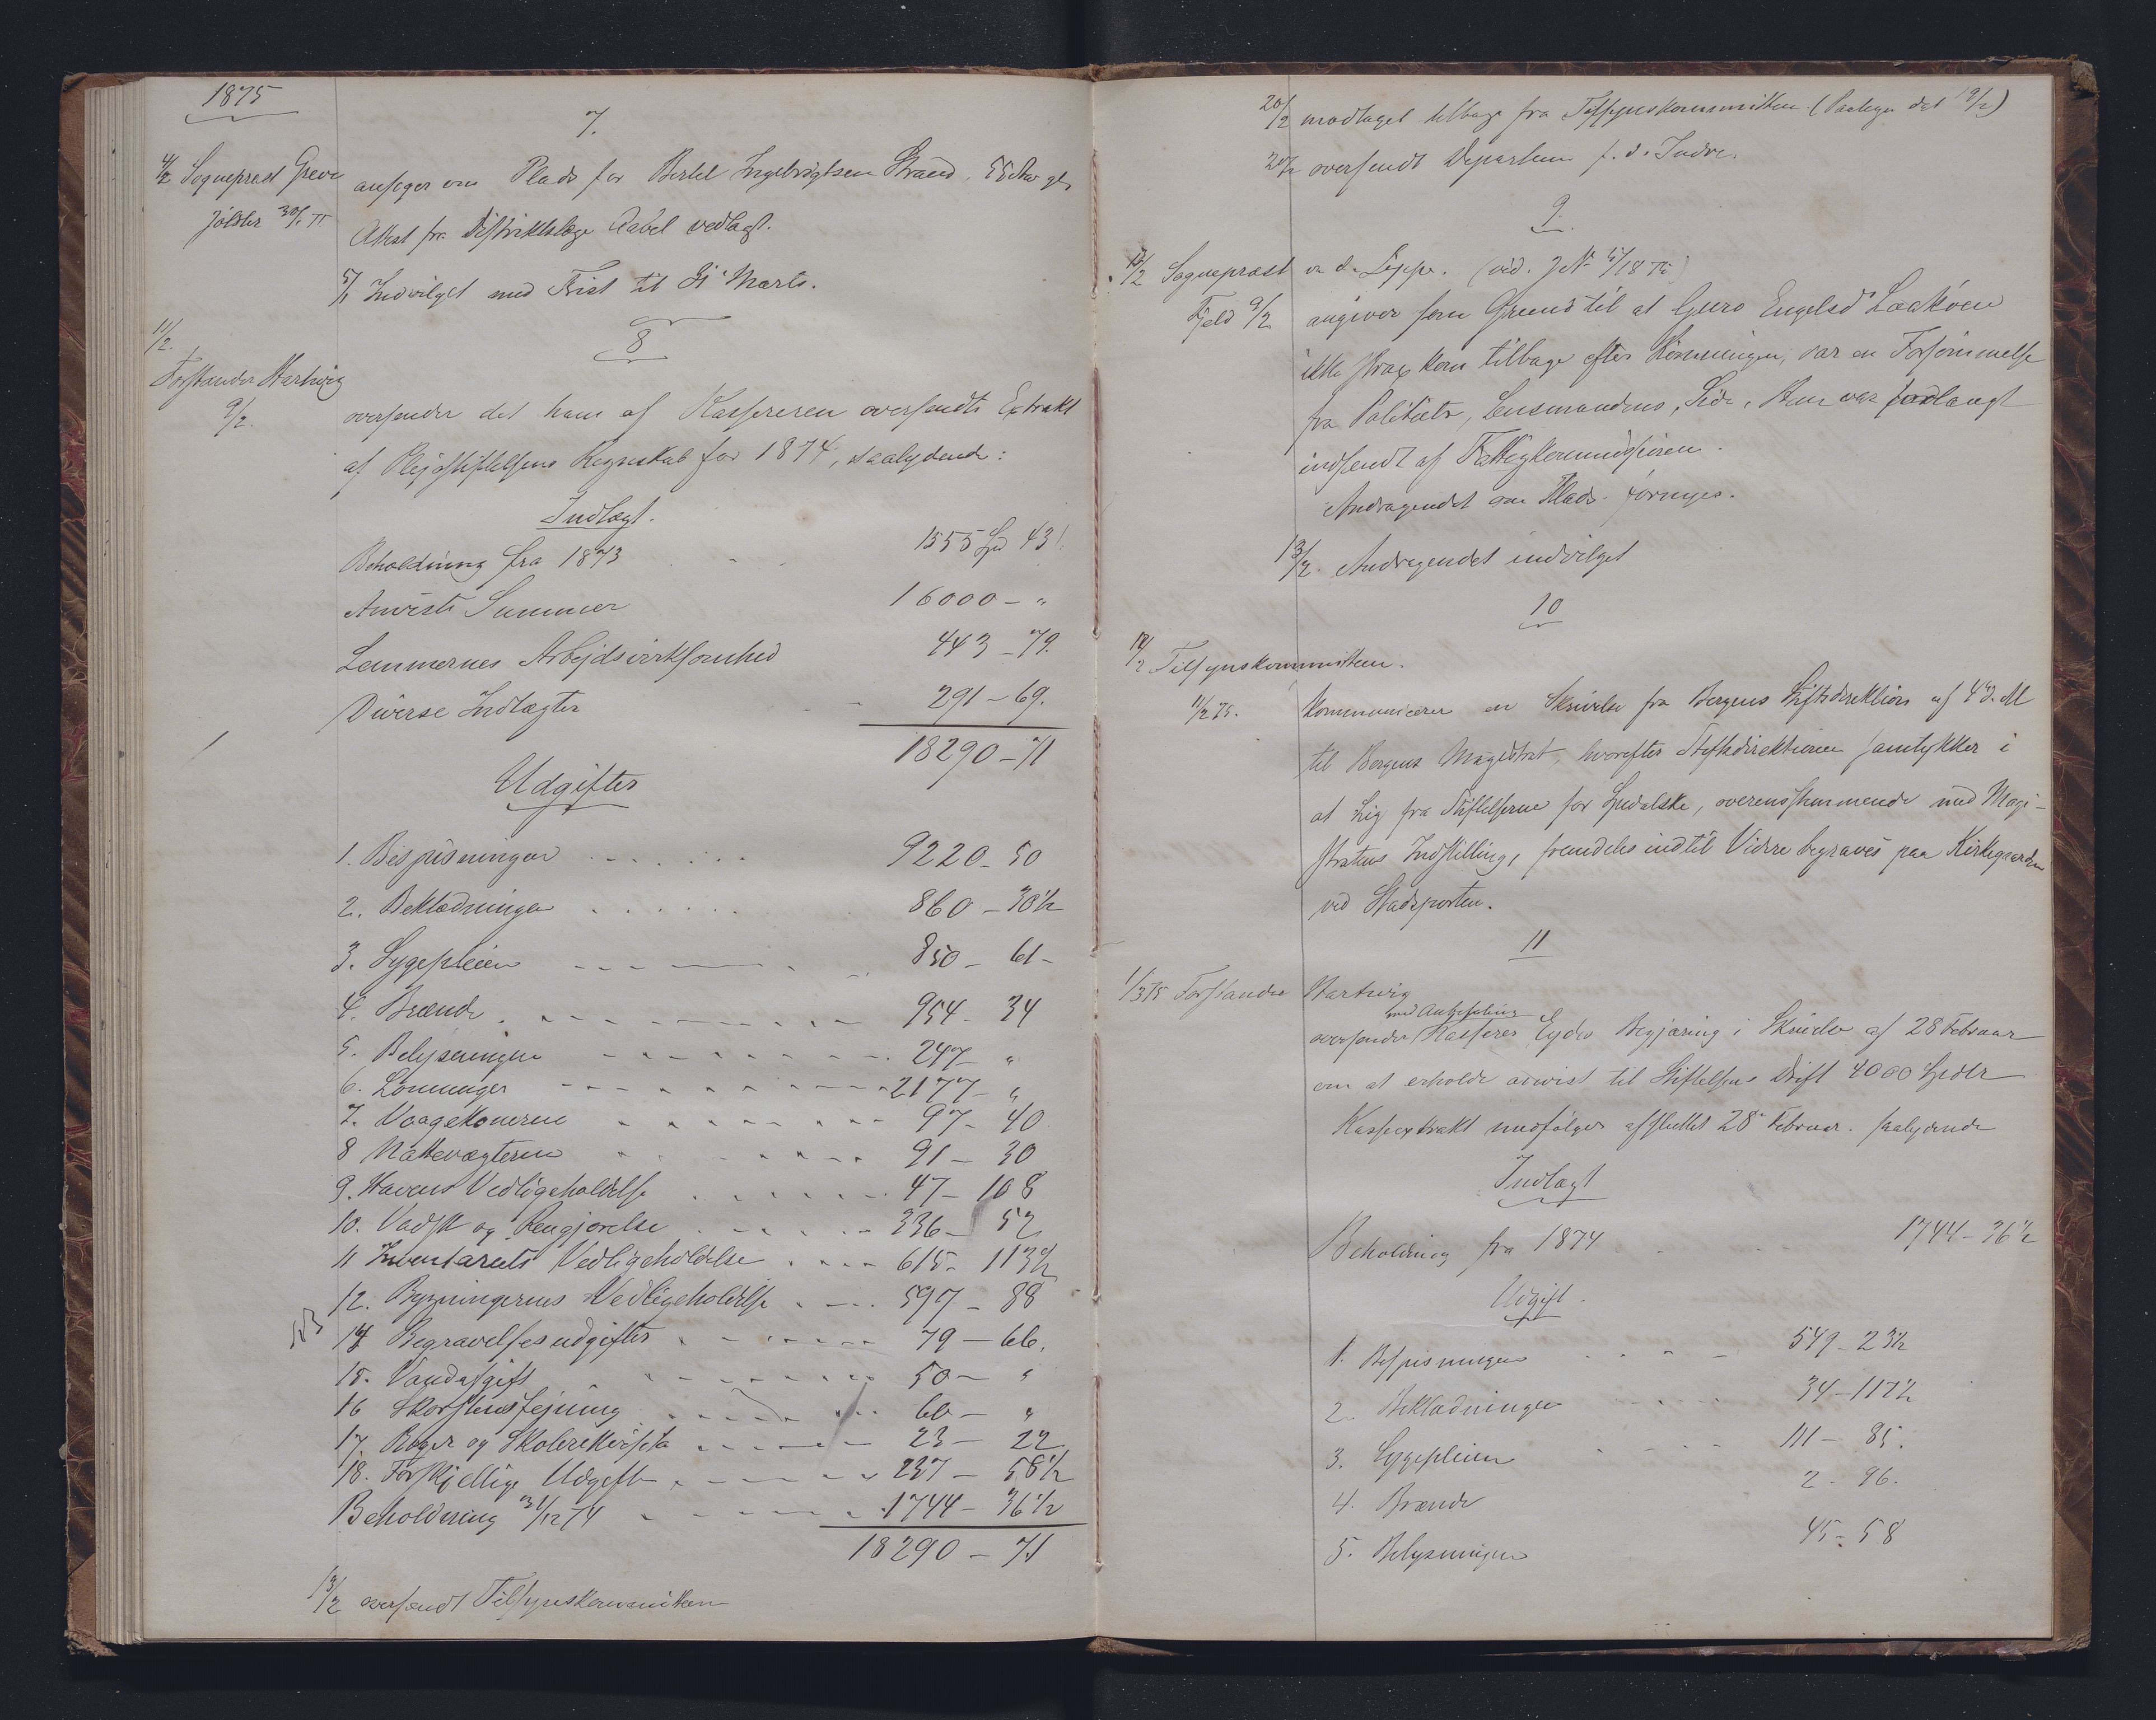 1875
7.
4/2 Sogneprest Greve ansøger om Plads for Bertel Ingebrigtsen Strand, 55 Aar gl.
Jölster 30/1 75 Attest fra Distriktslæge Rabel vedlagt.
5/ Indvilget med Frist til Marts.
11/2. 8
Forstander Hartwig
9/2. oversender det ham af Kassereren oversendte Extrakt
af Plejestiftelsens Regnskab for 1874, saalydende:
Indtægt.
Beholdning fra 1873 1555 Spd 43 /.
Anviste Summer 16000 - "
Lemmernes Arbejdsvirksomhed 443 - 79.
Diverse Indtægter 291 - 69.
18290 - 71
Udgifter
1. Bespisningen 9220 - 50
2. Beklædningen 860 - 30 1/2
3. Sygepleien 850 - 61 -
4. Brænde 954 - 34
5. Belysningen 247 - "
6. Lønninger 2177 - "
7. Vaagekonerne 97 - 40
8 Nattevægteren 91 - 30
9. Havens Vedligeholdelse 47 - 108
10. Vadsk og Rengjørelse 336 - 52
11 Inventariets Vedligeholdelse 615 - 113 1/2
12. Bygningernes Vedligeholdelse 597 - 88
14 Begravelsesudgifter 79 - 66.
15. Vandafgift 50 - "
16 Skorstensfejning 60 - "
17. Bøger og Skolerekvisita 23 - 22
18. Forskjellige Udgifter 237 - 58 1/2
Beholdning 31/12 74 1744 - 36 1/2
18290 - 71
13/2 oversendt Tilsynskommiteen
20/2 modtaget tilbage fra Tilsynskommiteen. (Paategn. dat 19/2)
20/2 oversendt Departem f. d. Indre.
9.
12/2 Sogneprest v. d. Lippe. (vid. J№ 5/18 75)
Fjeld 9/2 angiver som Grund til at Guro Engelsd Laakøen
ikke strax kom tilbage efter Rømningen, var en Forsømmelse
fra Politiets, Lensmandens, Side. Hun var forlangt
indsendt af Fattigkommissionen.
Andragendet om Plads fornyes.
13/2. Andragendet indvilget
10
12/2 Tilsynskommiteen.
11/2 75. kommunicerer en Skrivelse fra Bergens Stiftsdirektion af 4 d. M
til Bergens Magistrat, hvorefter Stiftsdirektionen samtykker i
at Lig fra Stiftelserne for Spedalske, overensstemmende med Magi-
stratens Indstilling, fremdeles indtil Videre begraves paa Kirkegaarden
ved Stadsporten.
11
1/3 75 Forstander Hartwig
med Anbefaling
oversender Kasserer Begjæring i Skrivelse af 28 Februar
om at erholde anvist til Stiftelsens Drift 4000 Spdlr
Kasseextrakt medfølger afsluttet 28 Februar. saalydende
Indtægt
Beholdning fra 1874 1744 - 36 1/2
Udgift.
1. Bespisningen 549 - 23 1/2
2. Beklædningen 34 - 117 1/2
3. Sygepleien 111 - 85.
4. Brænde 2 - 96.
5. Belysningen 45 - 58